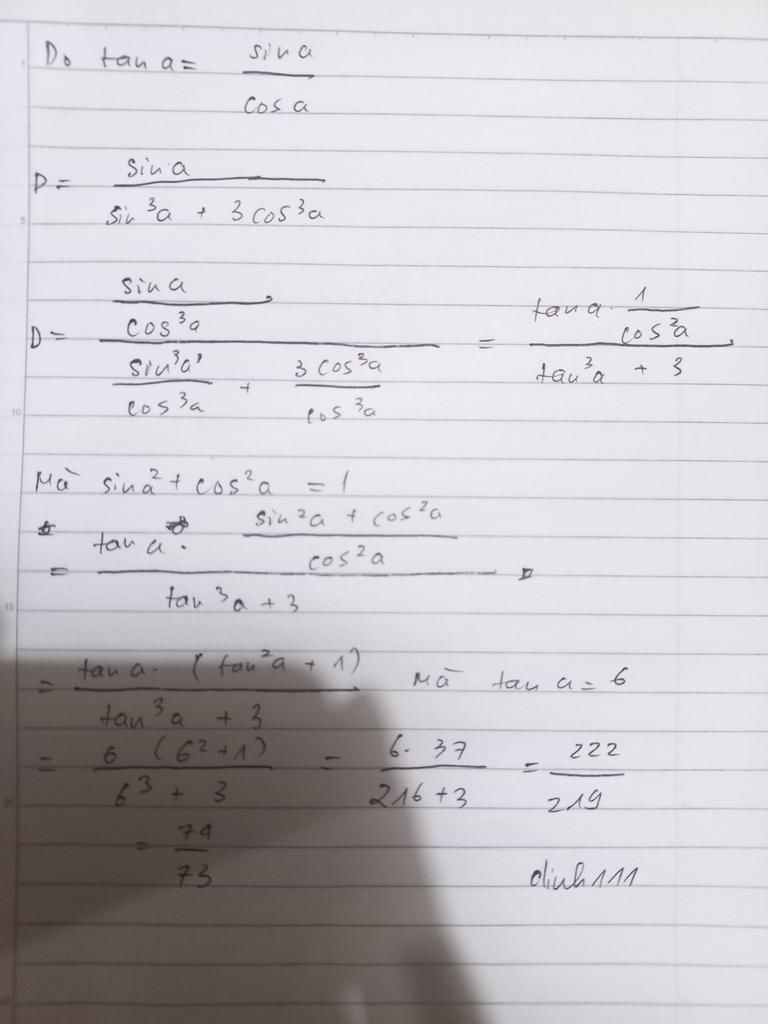 Do tan a = sin a / cos a
D = sin a / (sin³a + 3 cos³a)
D = (sin a / cos³a) / (sin³a / cos³a + 3 cos³a / cos³a) = (tan a · 1 / cos²a) / (tan³a + 3)
Mà sin a² + cos²a = 1
= (tan a · (sin²a + cos²a) / cos²a) / (tan³a + 3)
= tan a · (tan²a + 1) / (tan³a + 3) Mà tan a = 6
= 6 (6² + 1) / (6³ + 3) = 6 · 37 / (216 + 3) = 222 / 219
= 74 / 73
dinh111